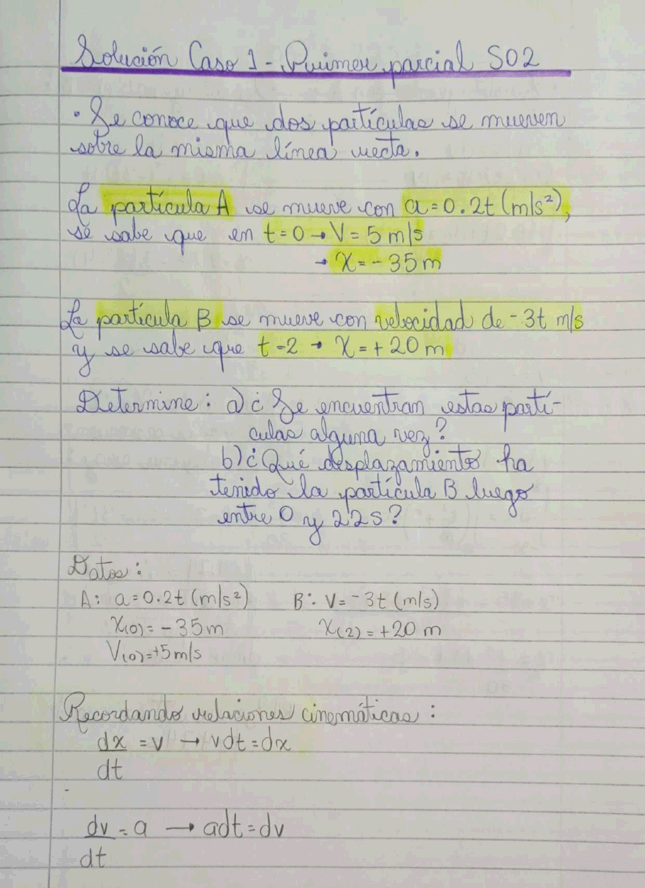 Solución Caso 1 - Primer parcial S02
• Se conoce que dos partículas se mueven
sobre la misma línea recta.
La partícula A se mueve con a = 0.2t (m/s²),
se sabe que en t=0 → V = 5 m/s
→ X = -35 m
La partícula B se mueve con velocidad de -3t m/s
y se sabe que t=2 → X = +20 m
Determine: a) ¿Se encuentran estas partí-
culas alguna vez?
b) ¿Qué desplazamiento ha
tenido la partícula B luego
entre 0 y 22s?
Datos:
A: a = 0.2t (m/s²) B: V = -3t (m/s)
X(0) = -35 m X(2) = +20 m
V(0) = +5 m/s
Recordando relaciones cinemáticas:
dx = v → vdt = dx
dt
dv = a → adt = dv
dt